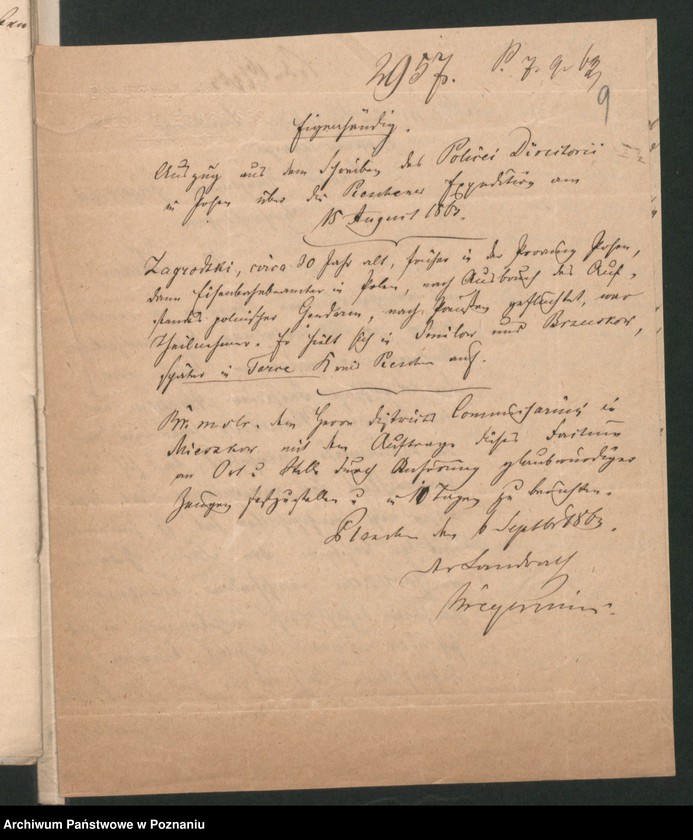 2957. P. 7. 9. 63
9
Eigenhändig.
Auszug aus dem Schreiben des Polizei Directorii
in Posen über die Pleschener Expedition am
15 August 1863.
Zagrodzki, circa 30 Jahr alt, früher in der Provinz Posen,
dann Eisenbahnbeamter in Polen, nach Ausbruch des Auf-
standes polnischer Gendarm, nach Preußen geflüchtet, war
Theilnehmer. Er hielt sich in und
später in Tarce Kreis Pleschen auf.
dem Herrn Districts Commissarius in
mit dem Auftrage dieses Factum
an Ort u Stelle durch Anhörung glaubwürdiger
Zeugen festzustellen u in 10 Tagen zu berichten.
Pleschen den 6 Septbr 1863.
Der Landrath
Archiwum Państwowe w Poznaniu